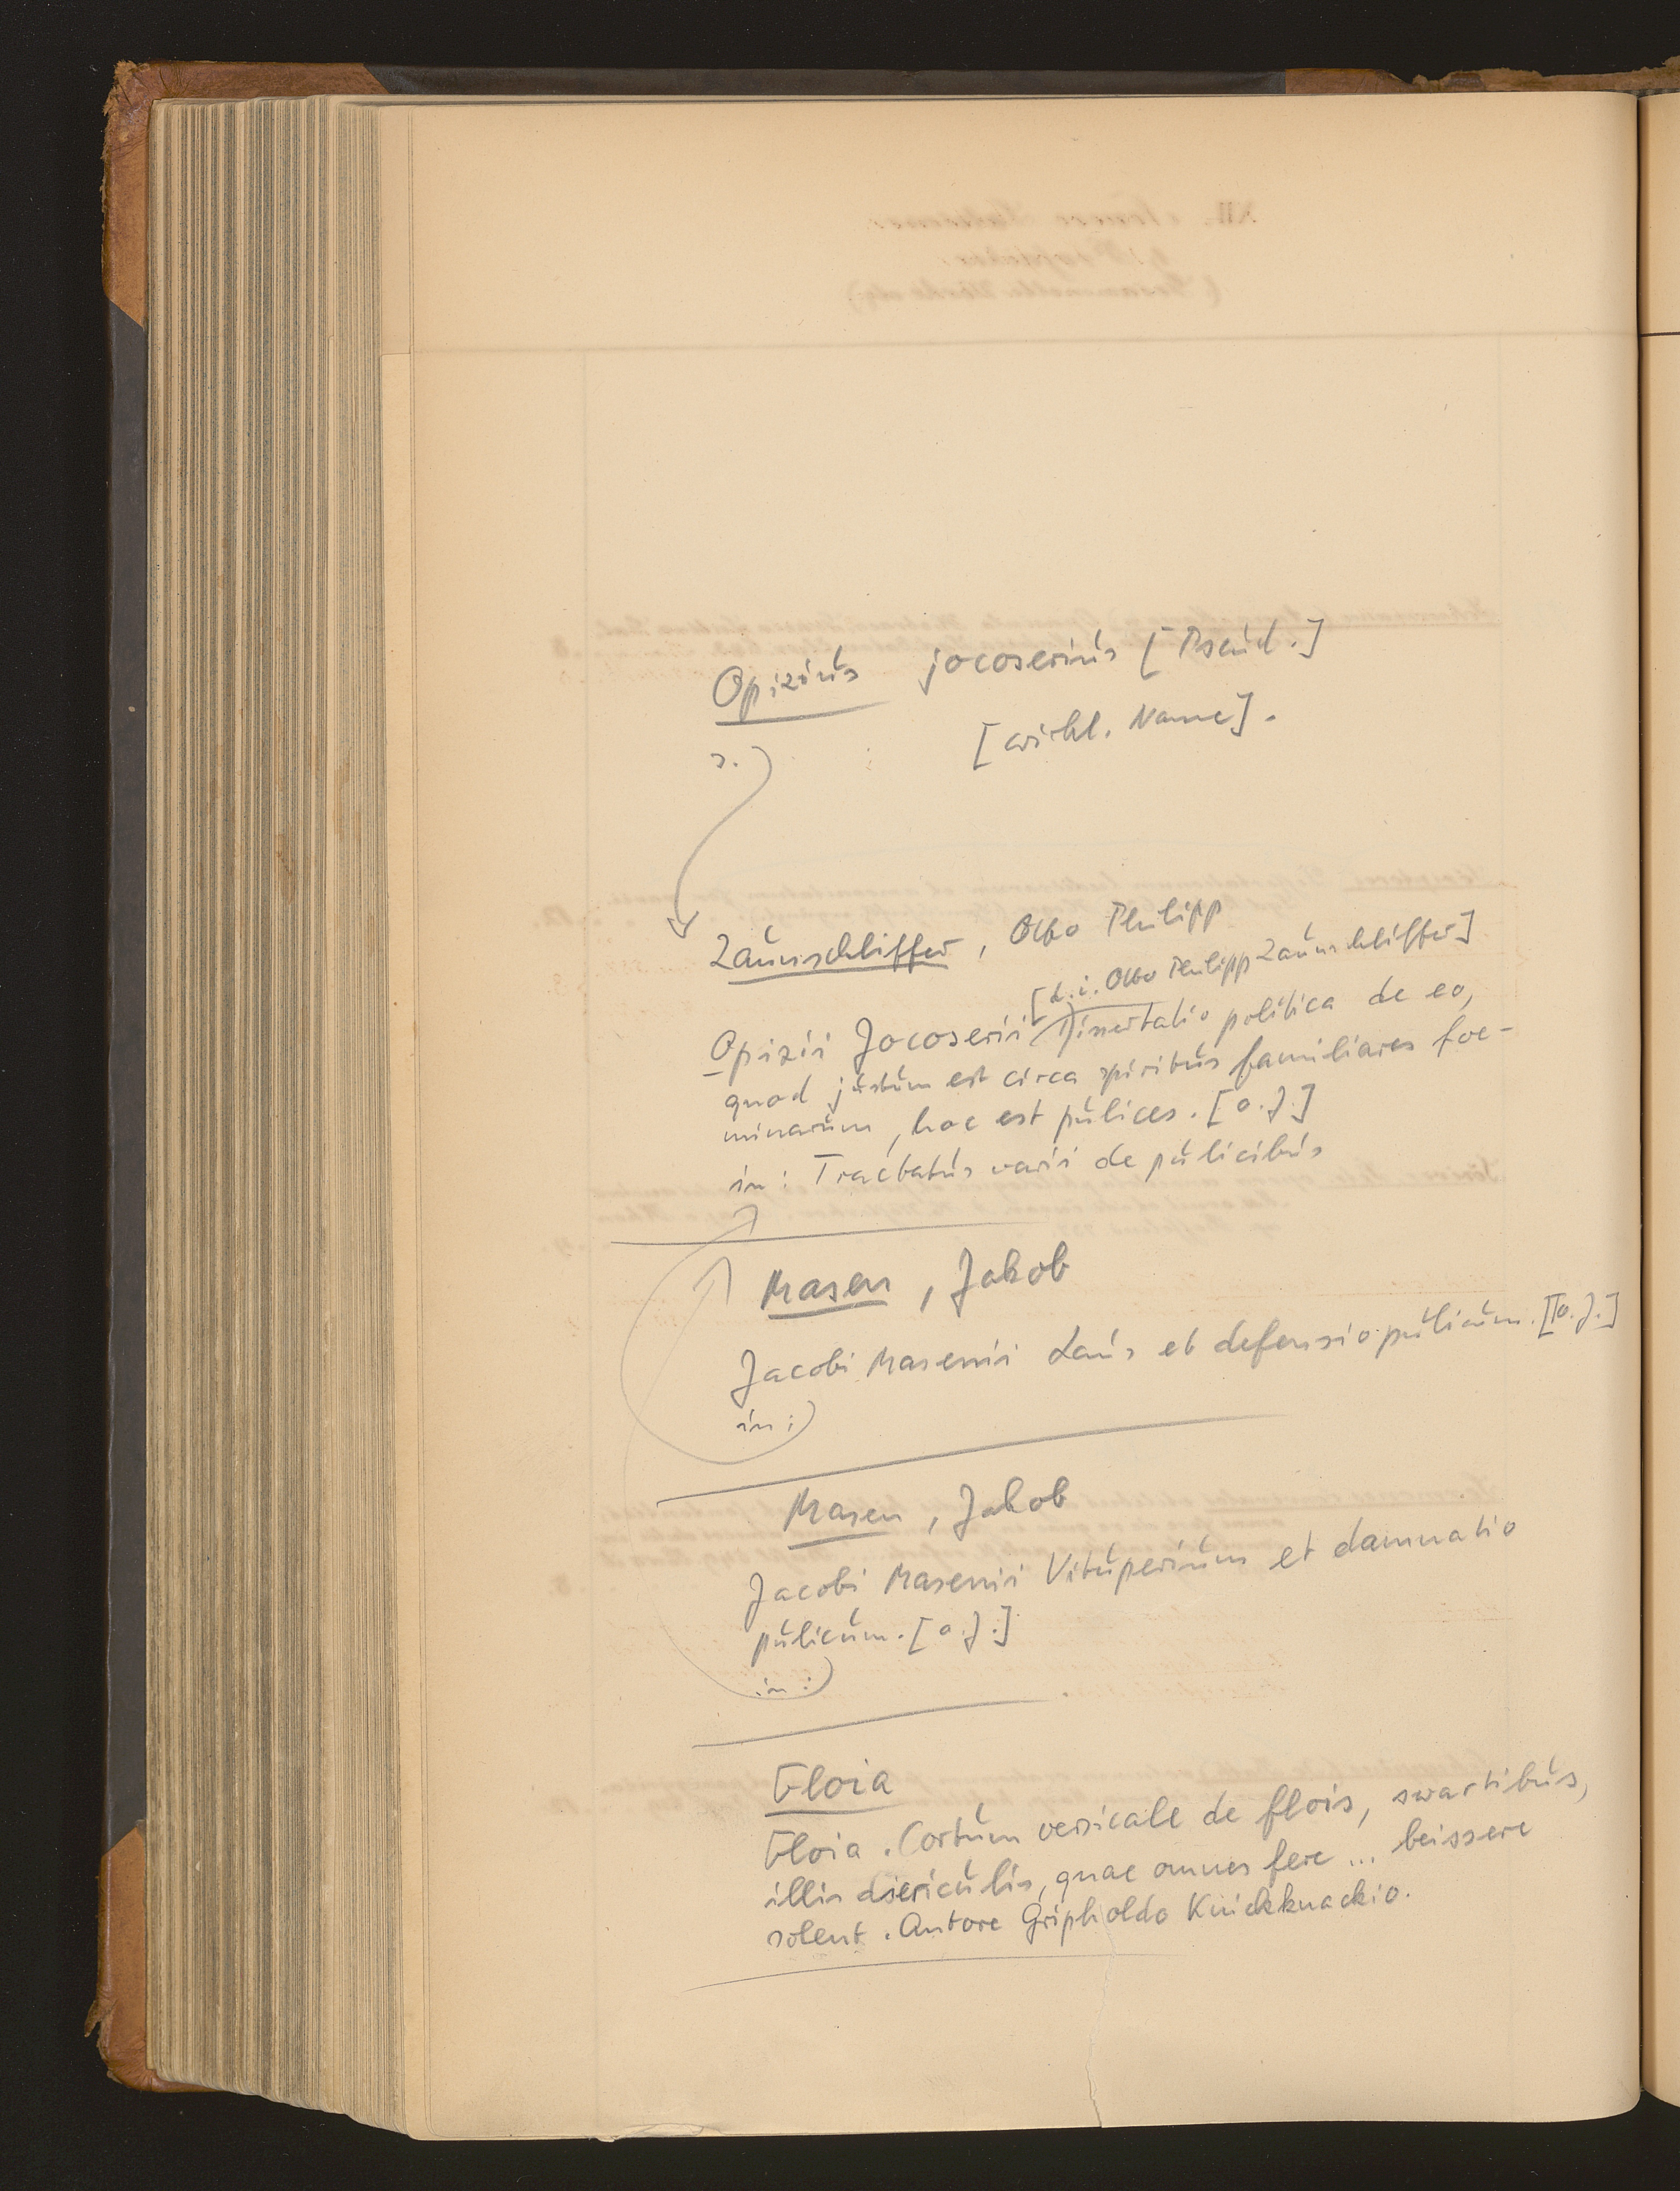 Opizius jocoserius [Pseud.]
[wirkl. Name].
s.
Zaunschliffer, Otto Philipp
[d.i. Otto Philipp Zaunschliffer]
Opizii Jocoserii Dissertatio politica de eo,
quod justum est circa spiritus familiares foe-
minarum, hoc est pulices. [o.J.]
in: Tractatus varii de pulicibus
Masen, Jakob
Jacobi Masenii Laus et defensio pulicum. [o.J.]
in:
Masen, Jakob
Jacobi Masenii Vituperium et damnatio
pulicum. [o.J.]
in:
Floia
Floia. Cortum versicale de flois, swartibus,
illis diericulis, quae omnes fere ... beissere
solent. Autore Gripholdo Knickknackio.